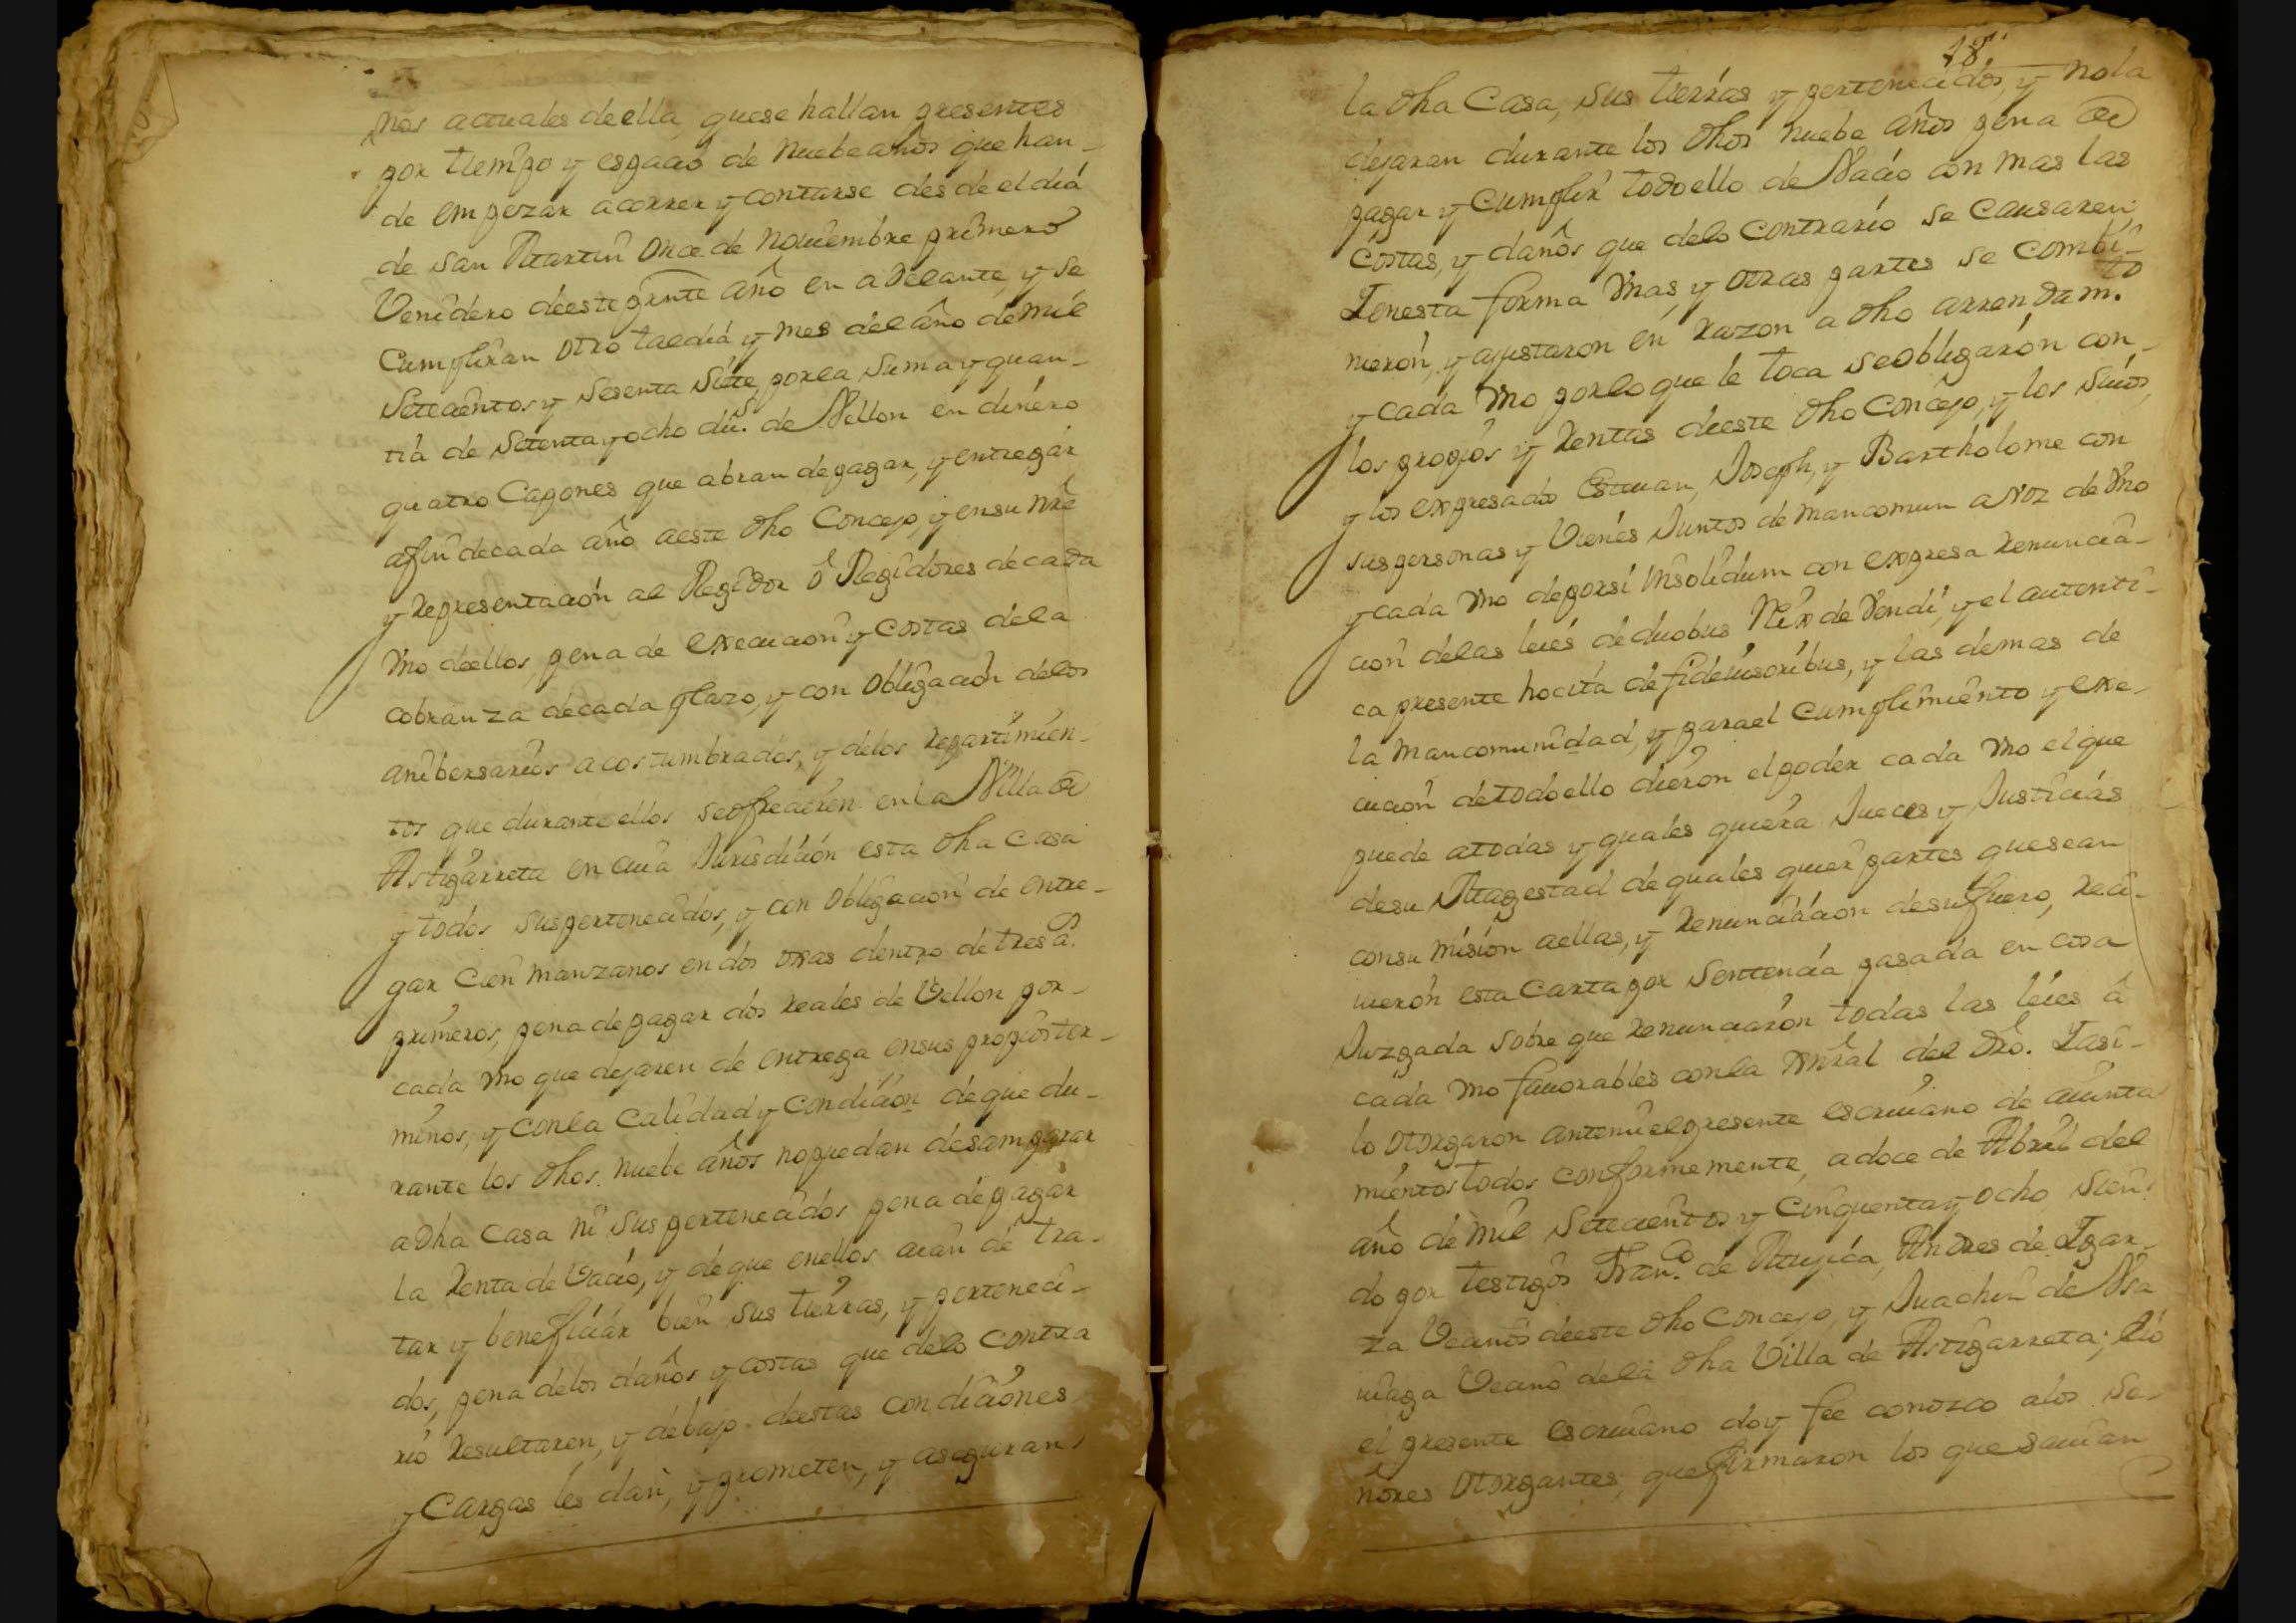 nos actuales de ella, que se hallan presentes
por tiempo y espacio de nuebe años que han
de empezar a correr y contarse desde el dia
de san Martin once de Nouiembre primero
Venidero de este pnte año en adelante, y se
Cumpliran otro tal dia y mes del año de mil
Setecientos y sesenta Siete, por la Suma y quan-
tia de Setenta y ocho du.s de Vellon en dinero
quatro Capones que abran de pagar, y entregar
a fin de cada año a este dho Concejo, y en su nre
y representacion al Regidor ô Regidores de cada
Vno de ellos, pena de execucion y costas de la
cobranza de cada plazo, y con obligacion de los
anibersarios acostumbrados, y de los repartimien-
tos que durante ellos se ofrecieren en la Villa de
Astigarreta en cuia Jurisdicion esta dha Casa
y todos sus pertenecidos, y con obligacion de entre-
gar Cien manzanos en dos oyas dentro de tres a.s
primeros, pena de pagar dos reales de Vellon por
cada Vno que dejaren de entrega en sus propios ter-
minos, y con la Calidad y Condicion de que du-
rante los dhos nuebe años no puedan desamparar
a dha Casa ni sus pertenecidos pena de pagar
la renta de Vacio, y de que en ellos aian de tra-
tar y beneficiar bien sus tierras, y perteneci-
dos, pena de los daños y costas que de lo contra
rio resultaren, y debajo de estas condiciones
y Cargas les dan, y prometen, y aseguran
18.
la dha Casa, sus tierras y pertenecidos, y no la
dejaran durante los dhos nuebe años pena de
pagar y Cumplir todo ello de Vacio con mas las
costas, y daños que de lo contrario se Causaren;
I en esta forma Vnas, y otras partes se combi-
nieron, y ajustaron en razon a dho arrendam.to
y cada Vno por lo que le toca se obligaron con
los propios y rentas de este dho Concejo, y los suios,
y los expresados Esteuan, Joseph, y Bartholome con
sus personas y Vienes Juntos de mancomun a Voz de Vno
y cada Vno de por si insolidum con expresa renuncia-
cion de las leies de duobus Reix de Vendi, y el autenti-
ca presente hocita de fideiusoribus, y las demas de
la mancomunidad, y para el Cumplimiento y exe-
cucion de todo ello dieron el poder cada Vno el que
puede a todas y quales quiera Jueces y Justicias
de su Magestad de quales quier partes que sean
con sumision a ellas, y renunciacion de su fuero, reci-
uieron esta Carta por Sentencia pasada en cosa
Juzgada sobre que renunciaron todas las leies â
cada Vno fauorables con la gnral del dro. I asi
lo otorgaron ante mi el presente escriuano de aiunta
mientos todos conformemente, a doce de Abril del
año de mil Setecientos y Cinquenta y ocho, sien-
do por testigos Fran.co de Mujica, Andres de Igar-
za Vecinos de este dho Concejo, y Juachin de Vsa
uiaga Vecino de la dha Villa de Astigarreta; Eio
el presente escriuano doy fee conozco a los Se-
ñores otorgantes, que firmaron los que sauian